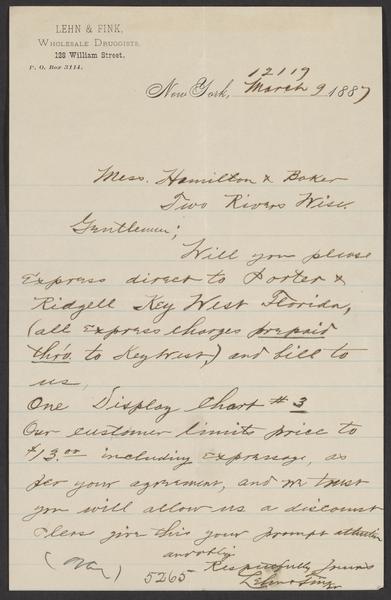 LEHN & FINK,
WHOLESALE DRUGGISTS,
128 William Street,
P. O. Box 3114.
12119
New York, March 9 1887
Mess. Hamilton & Baker
Two Rivers Wisc
Gentlemen;
Will you please
Express direct to Porter &
Ridgell Key West Florida,
(all Express charges prepaid
thro. to Key West,) and bill to
us,
One Display Chart #3
Our customer limits price to
$13.00 including Expressage, as
per your agreement, and we trust
you will allow us a discount
Please give this your prompt attention
and oblig
Respectfully Yours
(Over) 5265 Lehn & Fink